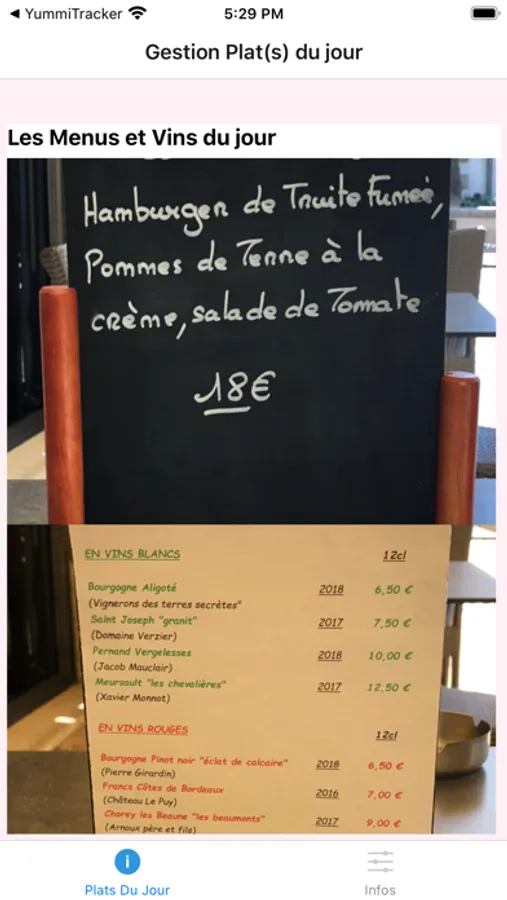 ◀ YummiTracker
5:29 PM
Gestion Plat(s) du jour
Les Menus et Vins du jour
Hamburger de Truite Fumée,
Pommes de Terre à la
crème, salade de Tomate
18€
EN VINS BLANCS 12cl
Bourgogne Aligoté 2018 6,50 €
(Vignerons des terres secrètes"
Saint Joseph "granit" 2017 7,50 €
(Domaine Verzier)
Pernand Vergelesses 2018 10,00 €
(Jacob Mauclair)
Meursault "les chevalières" 2017 12,50 €
(Xavier Monnot)
EN VINS ROUGES 12cl
Bourgogne Pinot noir "éclat de calcaire" 2018 6,50 €
(Pierre Girardin)
Francs Côtes de Bordeaux 2016 7,00 €
(Château Le Puy)
Chorey les Beaune "les beaumonts" 2017 9,00 €
(Arnoux père et fils)
Plats Du Jour
Infos